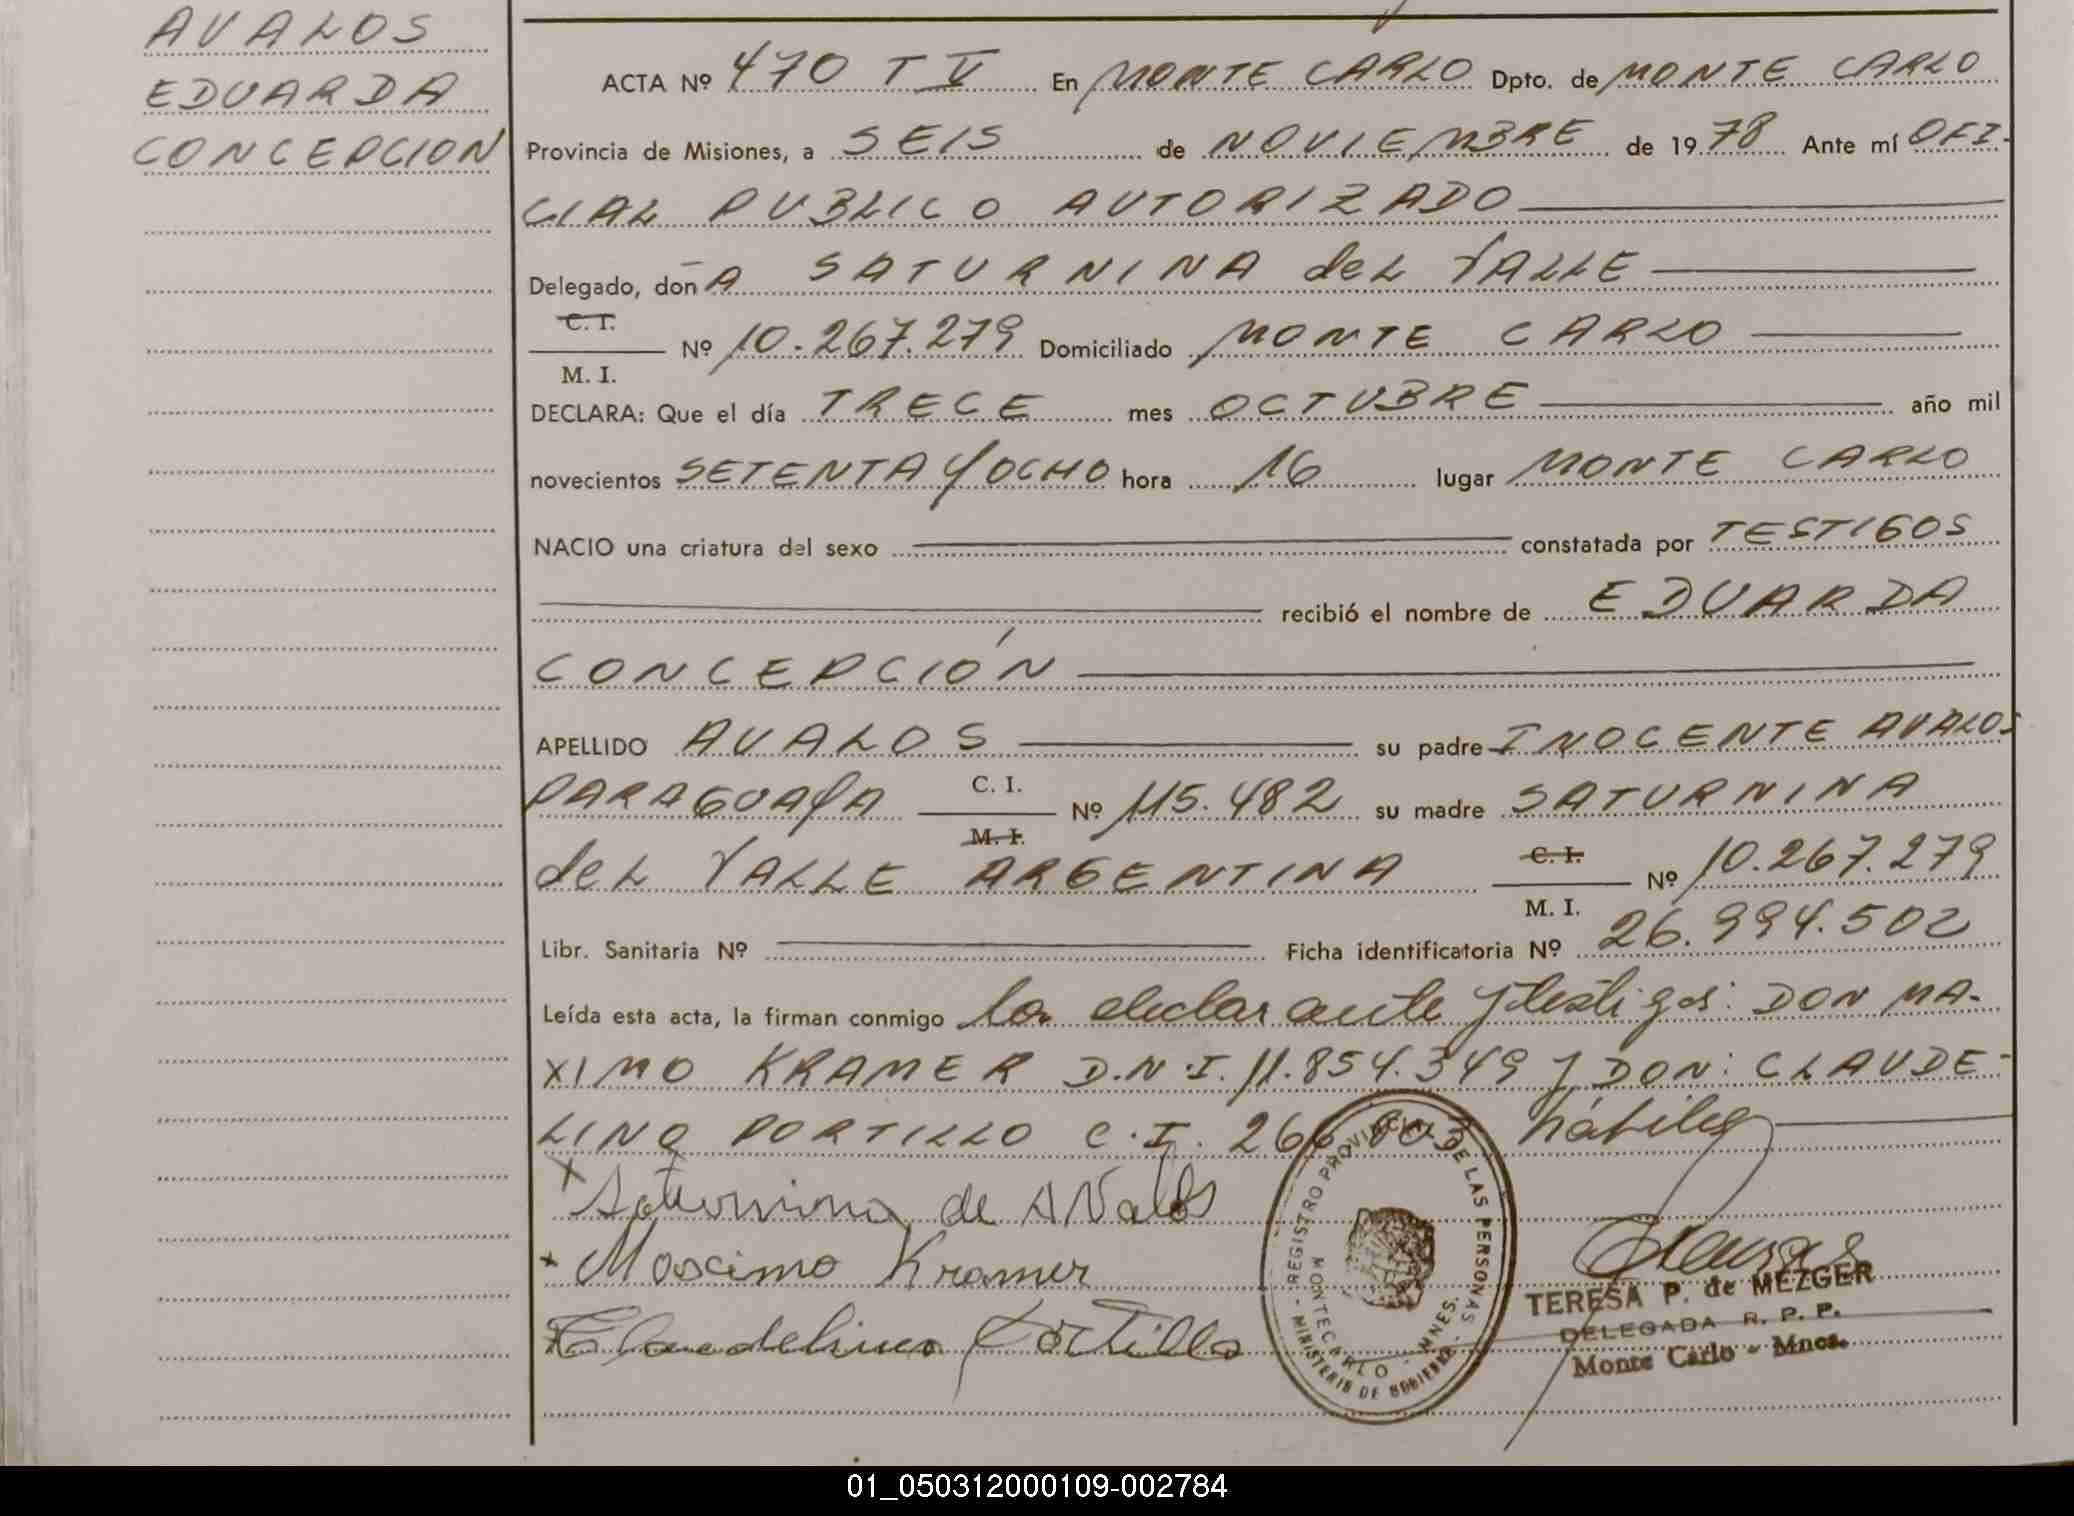 AVALOS
EDUARDA
CONCEPCION
ACTA Nº 470 T V En MONTE CARLO Dpto. de MONTE CARLO
Provincia de Misiones, a SEIS de NOVIEMBRE de 1978 Ante mí OFI-
CIAL PUBLICO AUTORIZADO
Delegado, donA SATURNINA del VALLE
C. I.
Nº 10.267.279 Domiciliado MONTE CARLO
M. I.
DECLARA: Que el día TRECE mes OCTUBRE año mil
novecientos SETENTA y OCHO hora 16 lugar MONTE CARLO
NACIO una criatura del sexo constatada por TESTIGOS
recibió el nombre de EDUARDA
CONCEPCIÓN
APELLIDO AVALOS su padre INOCENTE AVALOS
PARAGUAyA C. I. Nº 115.482 su madre SATURNINA
M. I.
del VALLE ARGENTINA C. I. Nº 10.267.279
M. I.
Libr. Sanitaria Nº Ficha identificatoria Nº 26.994.502
Leída esta acta, la firman conmigo la declarante y testigos: DON MA-
XIMO KRAMER D.N.I. 11.854.349 y DON: CLAUDE-
LINO PORTILLO C.I. 266.803 hábiles
x Saturnina de AValos
x Moscimo Kramer
x Claudelino Portillo
REGISTRO PROVINCIAL DE LAS PERSONAS
MONTECARLO - MNES.
- MINISTERIO DE GOBIERNO -
TERESA P. de MEZGER
DELEGADA R. P. P.
Monte Carlo - Mnes.
01_050312000109-002784